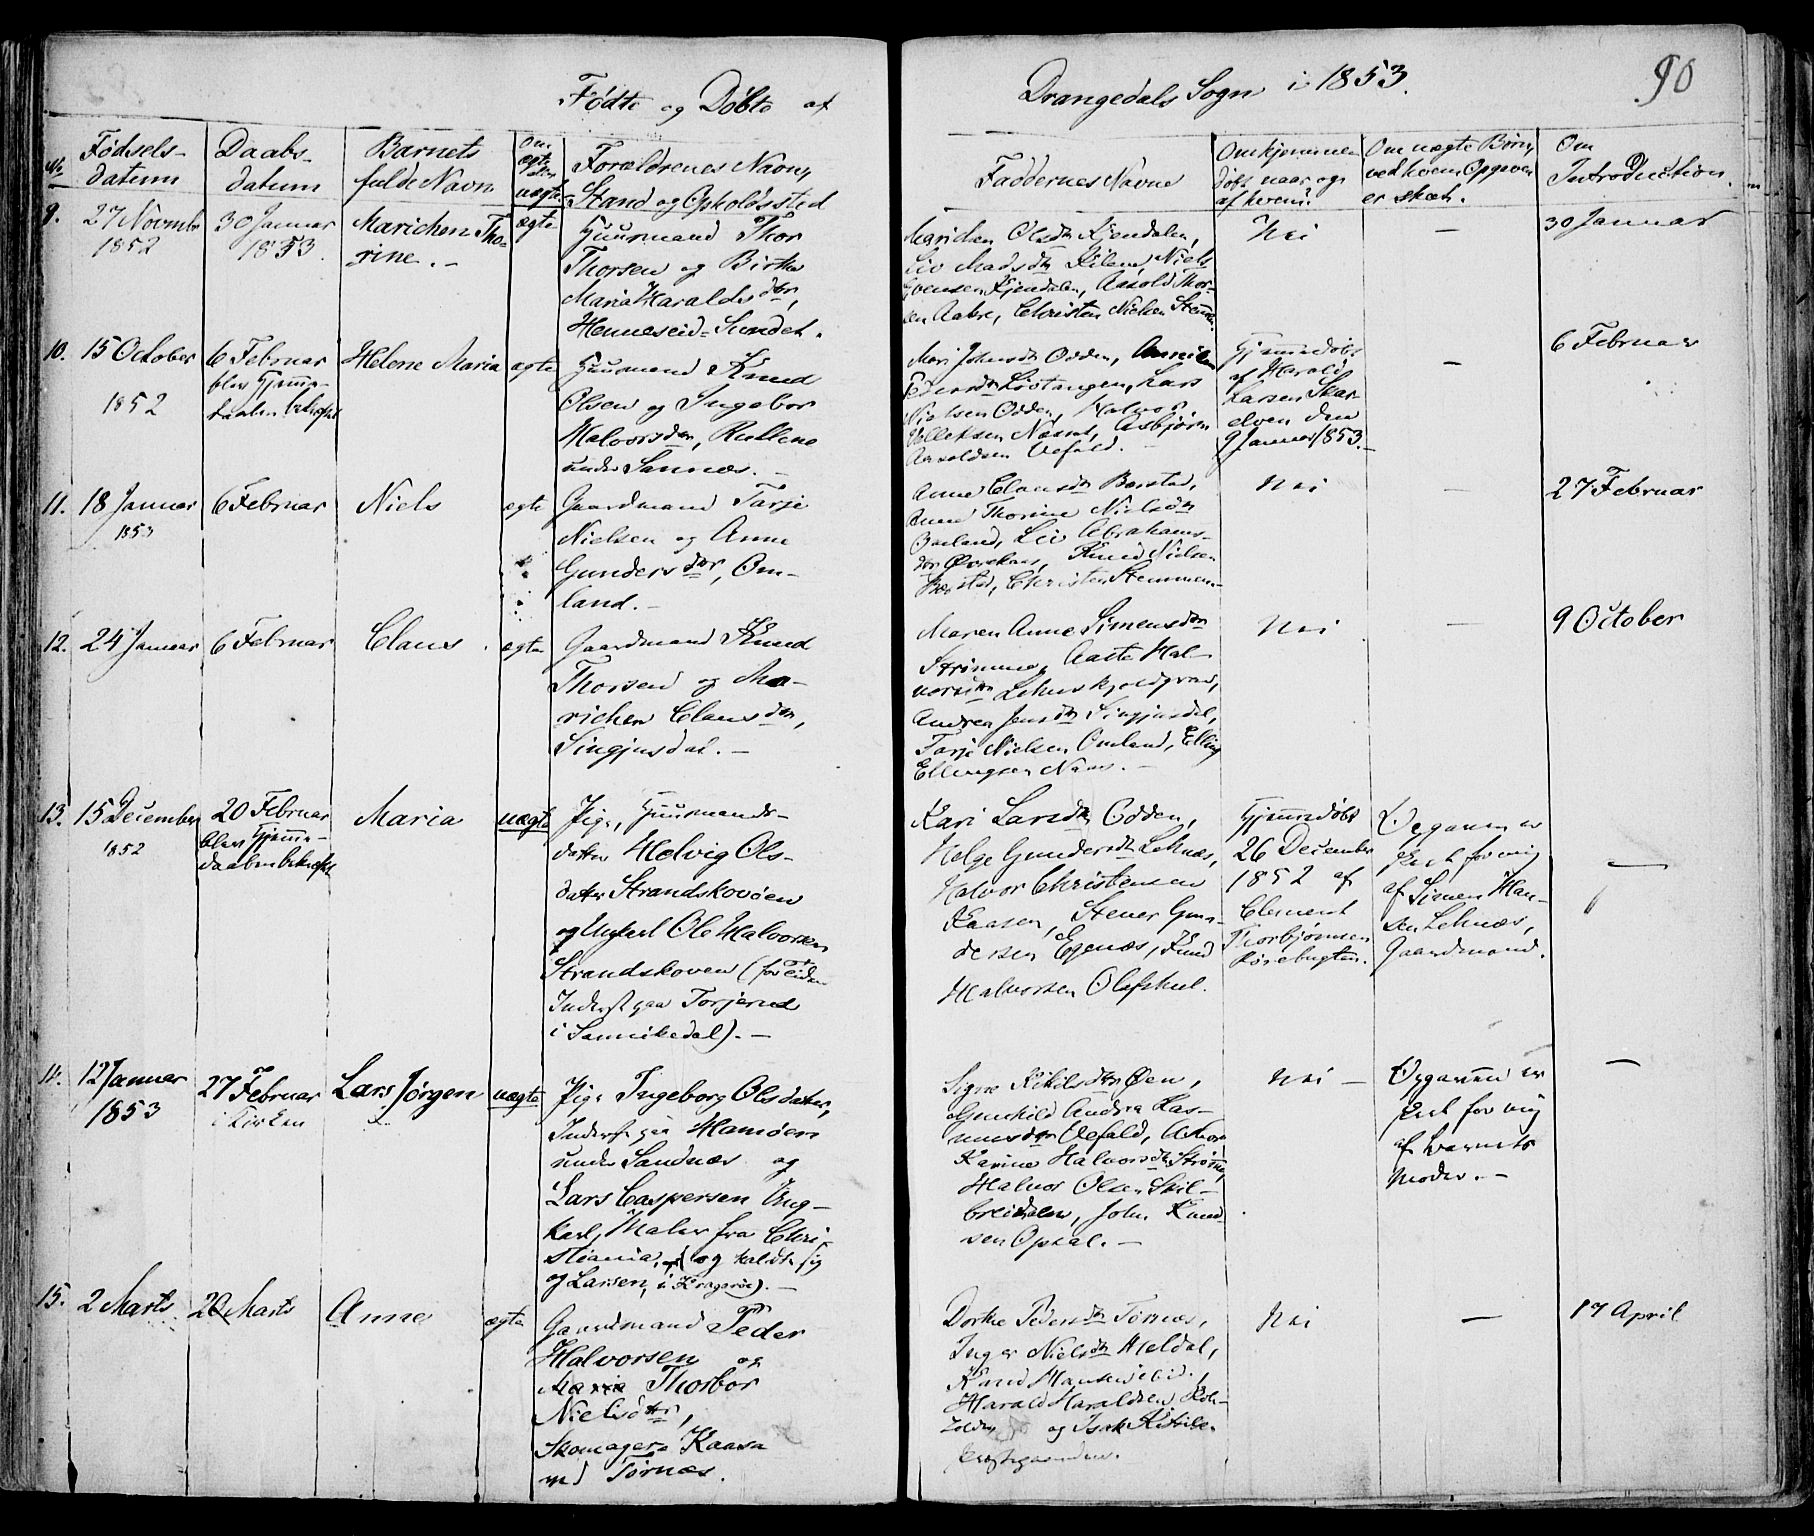 Fødte og Døbte af
Drangedals Sogn i 1853.
90
No
Fødsels-
datum
Daabs-
datum
Barnets
fulde Navn
Om
ægte
eller
uægte
Forældrenes Navn,
Stand og Opholdssted
Faddernes Navne
Om hjemme
døbt, naar og
af hvem?
Om uægte Børn,
ved hvem Opgaven
er skeet.
Om
Introduction.
9.
27 Novembr
1852
30 Januar
1853.
Marichen Tho-
rine. -
ægte
Huusmand Thor
Thorsen og Birthe
Maria Haraldsdtr,
Henneseid-Sundet.
Marichen Olsdtr Kjendalen,
Liv Madsdtr Kilene, Niels
Evensen Kjendalen, Aasold Thor-
sen Aabre, Christen Nielsen Stemmen
Nei
-
30 Januar
10.
15 October
1852
6 Februar
blev Hjemme-
daaben bekræftet
Helene Maria
ægte
Huusmand Knud
Olsen og Ingebor
Halvorsdtr, Rullene
under Sannæs. -
Mari Johnsdtr Odden,
Løvtangen, Lars
Nielsen Odden, Halvor
Tolleksen Naas, Asbjørn
Aasoldsen Vefald. -
Hjemmedøbt
af Harald
Larsen Skar-
elven den
9 Januar 1853. -
-
6 Februar
11.
18 Januar
1853
6 Februar
Niels
ægte
Gaardmand Tarje
Nielsen og Anne
Gundersdtr, Om-
land. -
Anne Clausdtr Barstad,
Anne Thorine Nielsdtr
Omland, Liv Abrahams-
dtr, Knud Nielsen
Barstad, Christen Stemmen -
Nei
-
27 Februar
12.
24 Januar
6 Februar
Claus
ægte
Gaardmand Knud
Thorsen og Ma-
richen Clausdtr,
Singjusdal. -
Maren Anne Simensdtr
Strømme, Aaste Hal-
vorsdtr
Andrea Jensdtr Singjusdal,
Tarje Nielsen Omland, Elling
Ellingsen Naas. -
Nei
-
9 October
13.
15 December
1852
20 Februar
blev Hjemme-
daaben bekræftet
Maria
uægte
Pige, Huusmands-
datter Helvig Ols-
datter Strandskovøen
og Ungkarl Ole Halvorsen
Strandskoven (for Tiden
Inderst paa Torjerud
i Sannikedal). -
Kari Larsdtr Odden,
Helge Gundersdtr Lehnæs,
Halvor Christensen
Kaasen, Stener Gun-
dersen Egenæs, Knud
Halvorsen
Hjemmedøbt
26 December
1852 af
Clement
Thorbjørnsen
Rørebugten.
Opgaven er
skeet for mig
af Simen Han-
sen Lehnæs,
Gaardmand.
-
14.
12 Januar
1853
27 Februar
i Kirken
Lars Jørgen
uægte
Pige Ingeborg Olsdatter,
Inderst paa Hamoen
under Sandnæs og
Lars Caspersen Ung-
karl, Maler fra Chri-
stiania, (og kaldte sig
og Larsen, i Kragerøe). -
Signe Kittilsdtr Øen,
Gunhild Andrea Ras-
musdtr Vefald,
Karine Halvorsdtr Strømme,
Halvor Olsen Skil-
breidalen, John Knud-
sen Opsal. -
Nei -
Opgaven er
skeet for mig
af Barnets
Moder. -
-
15.
2 Marts
20 Marts
Anne
ægte
Gaardmand Peder
Halvorsen og
Maria Thorbor
Nielsdtr,
Skomagere Kaasa
ved Tørnæs.
Dorthe Pedersdtr Tørnæs,
Inger Nielsdtr Heldal,
Knud
Harald Haraldsen
og Isak Kittils-
Nei
-
17 April